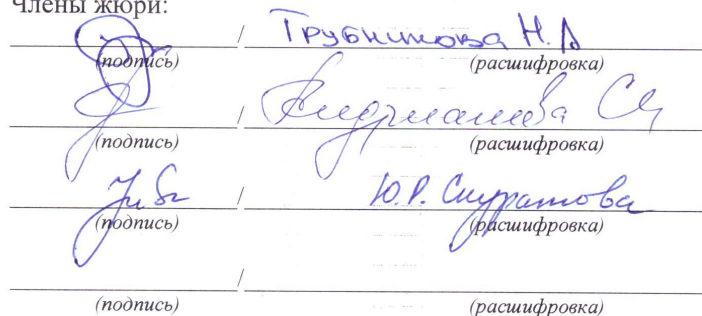 Члены жюри:
/ Трубникова Н. А
(подпись) (расшифровка)
/
(подпись) (расшифровка)
/ Ю.Р. Скуратова
(подпись) (расшифровка)
/
(подпись) (расшифровка)